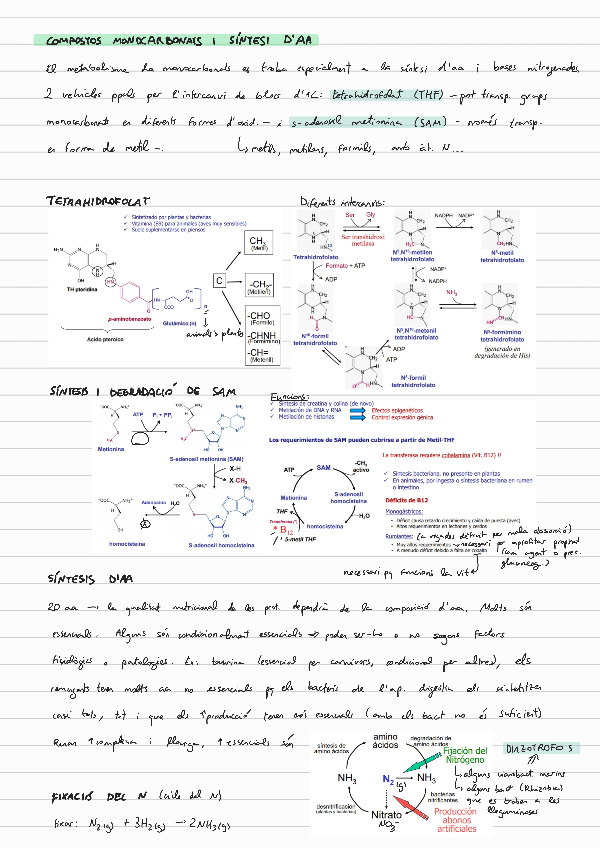 COMPOSTOS MONOCARBONATS I SÍNTESI D'AA
El metabolisme de monocarbonats es troba especialment a la síntesi d'aa i bases nitrogenades,
2 vehicles ppals per l'intercanvi de blocs d'1C: tetrahidrofolat (THF) - pot transp. grups
monocarbonats en diferents formes d'oxid. - i s-adenosil metionina (SAM) - només transp.
en forma de metil -. ↳ metils, metilens, formils, amb àt. N...
TETRAHIDROFOLAT
Diferents intercanvis:
✓ Sintetizado por plantas y bacterias
✓ Vitamina (B9) para animales (aves muy sensibles)
✓ Suele suplementarse en piensos
TH pteridina
p-aminobenzoato
Glutámico (n)
Acido pteroico
animals plants
C
-CH3
(Metil)
-CH2-
(Metilen)
-CHO
(Formilo)
-CHNH
(Formimino)
-CH=
(Metenil)
Ser Gly
Ser transhidroxi
metilasa
NADPH NADP+
Tetrahidrofolato
N5,N10-metilen
tetrahidrofolato
N5-metil
tetrahidrofolato
Formato + ATP
ADP
NADP+
NADPH
NH3
N10-formil
tetrahidrofolato
N5,N10-metenil
tetrahidrofolato
N5-formimino
tetrahidrofolato
(generado en
degradación de His)
ADP
ATP
N5-formil
tetrahidrofolato
SÍNTESIS I DEGRADACIÓ DE SAM
Funcions:
✓ Síntesis de creatina y colina (de novo)
✓ Metilación de DNA y RNA Efectos epigenéticos
✓ Metilación de histonas Control expresión génica
ATP Pi + PPi
Metionina
S-adenosil metionina (SAM)
X-H
X-CH3
Adenosina H2O
homocisteina
S-adenosil homocisteina
Los requerimientos de SAM pueden cubrirse a partir de Metil-THF
ATP SAM -CH3
activo
Metionina
S-adenosil
homocisteina
THF
Transferasa (*)
* B12
5-metil THF
homocisteina
H2O
La transferasa requiere cobalamina (Vit. B12) !!
✓ Síntesis bacteriana, no presente en plantas
✓ En animales, por ingesta o síntesis bacteriana en rumen
o intestino
Déficits de B12
Monogástricos:
- Déficit causa retardo crecimiento y caída de puesta (aves)
- Altos requerimientos en lechones y cerdos
Rumiantes: (a vegades dèficit per mala absorció)
- Muy altos requerimientos → necessari per aprofitar propionat
- A menudo déficit debido a falta de cobalto (com agent o prec.
gluconeog.)
necessari pq funcioni la vit
SÍNTESIS D'AA
20 aa → la qualitat nutricional de les prot. dependrà de la composició d'aa. Molts són
essencials. Alguns són condicionalment essencials ⇒ poden ser-ho o no segons factors
fisiològics o patologies. Ex: taurina (essencial per carnívors, condicional per altres), els
remugants tenen molts aa no essencials pq els bacteris de l'ap. digestiu els sintetitzen
casi tots, tot i que els ↑producció tenen aas essencials (amb els bact no és suficient)
Ruta ↑complexa i llarga, ↑essencials són
FIXACIÓ DEL N (cicle del N)
fixar: N2(g) + 3H2(g) → 2NH3(g)
síntesis de
amino ácidos
amino
ácidos
degradación de
amino ácidos
Fijación del
Nitrógeno
NH3
N2(g)
NH3
desnitrificación
(plantas y bacterias)
bacterias
nitrificantes
Nitrato
NO3-
Producción
abonos
artificiales
DIAZÒTROFOS
↳ alguns cianobact. marins
↳ alguns bact (Rhizobia)
que es troben a les
lleguminoses